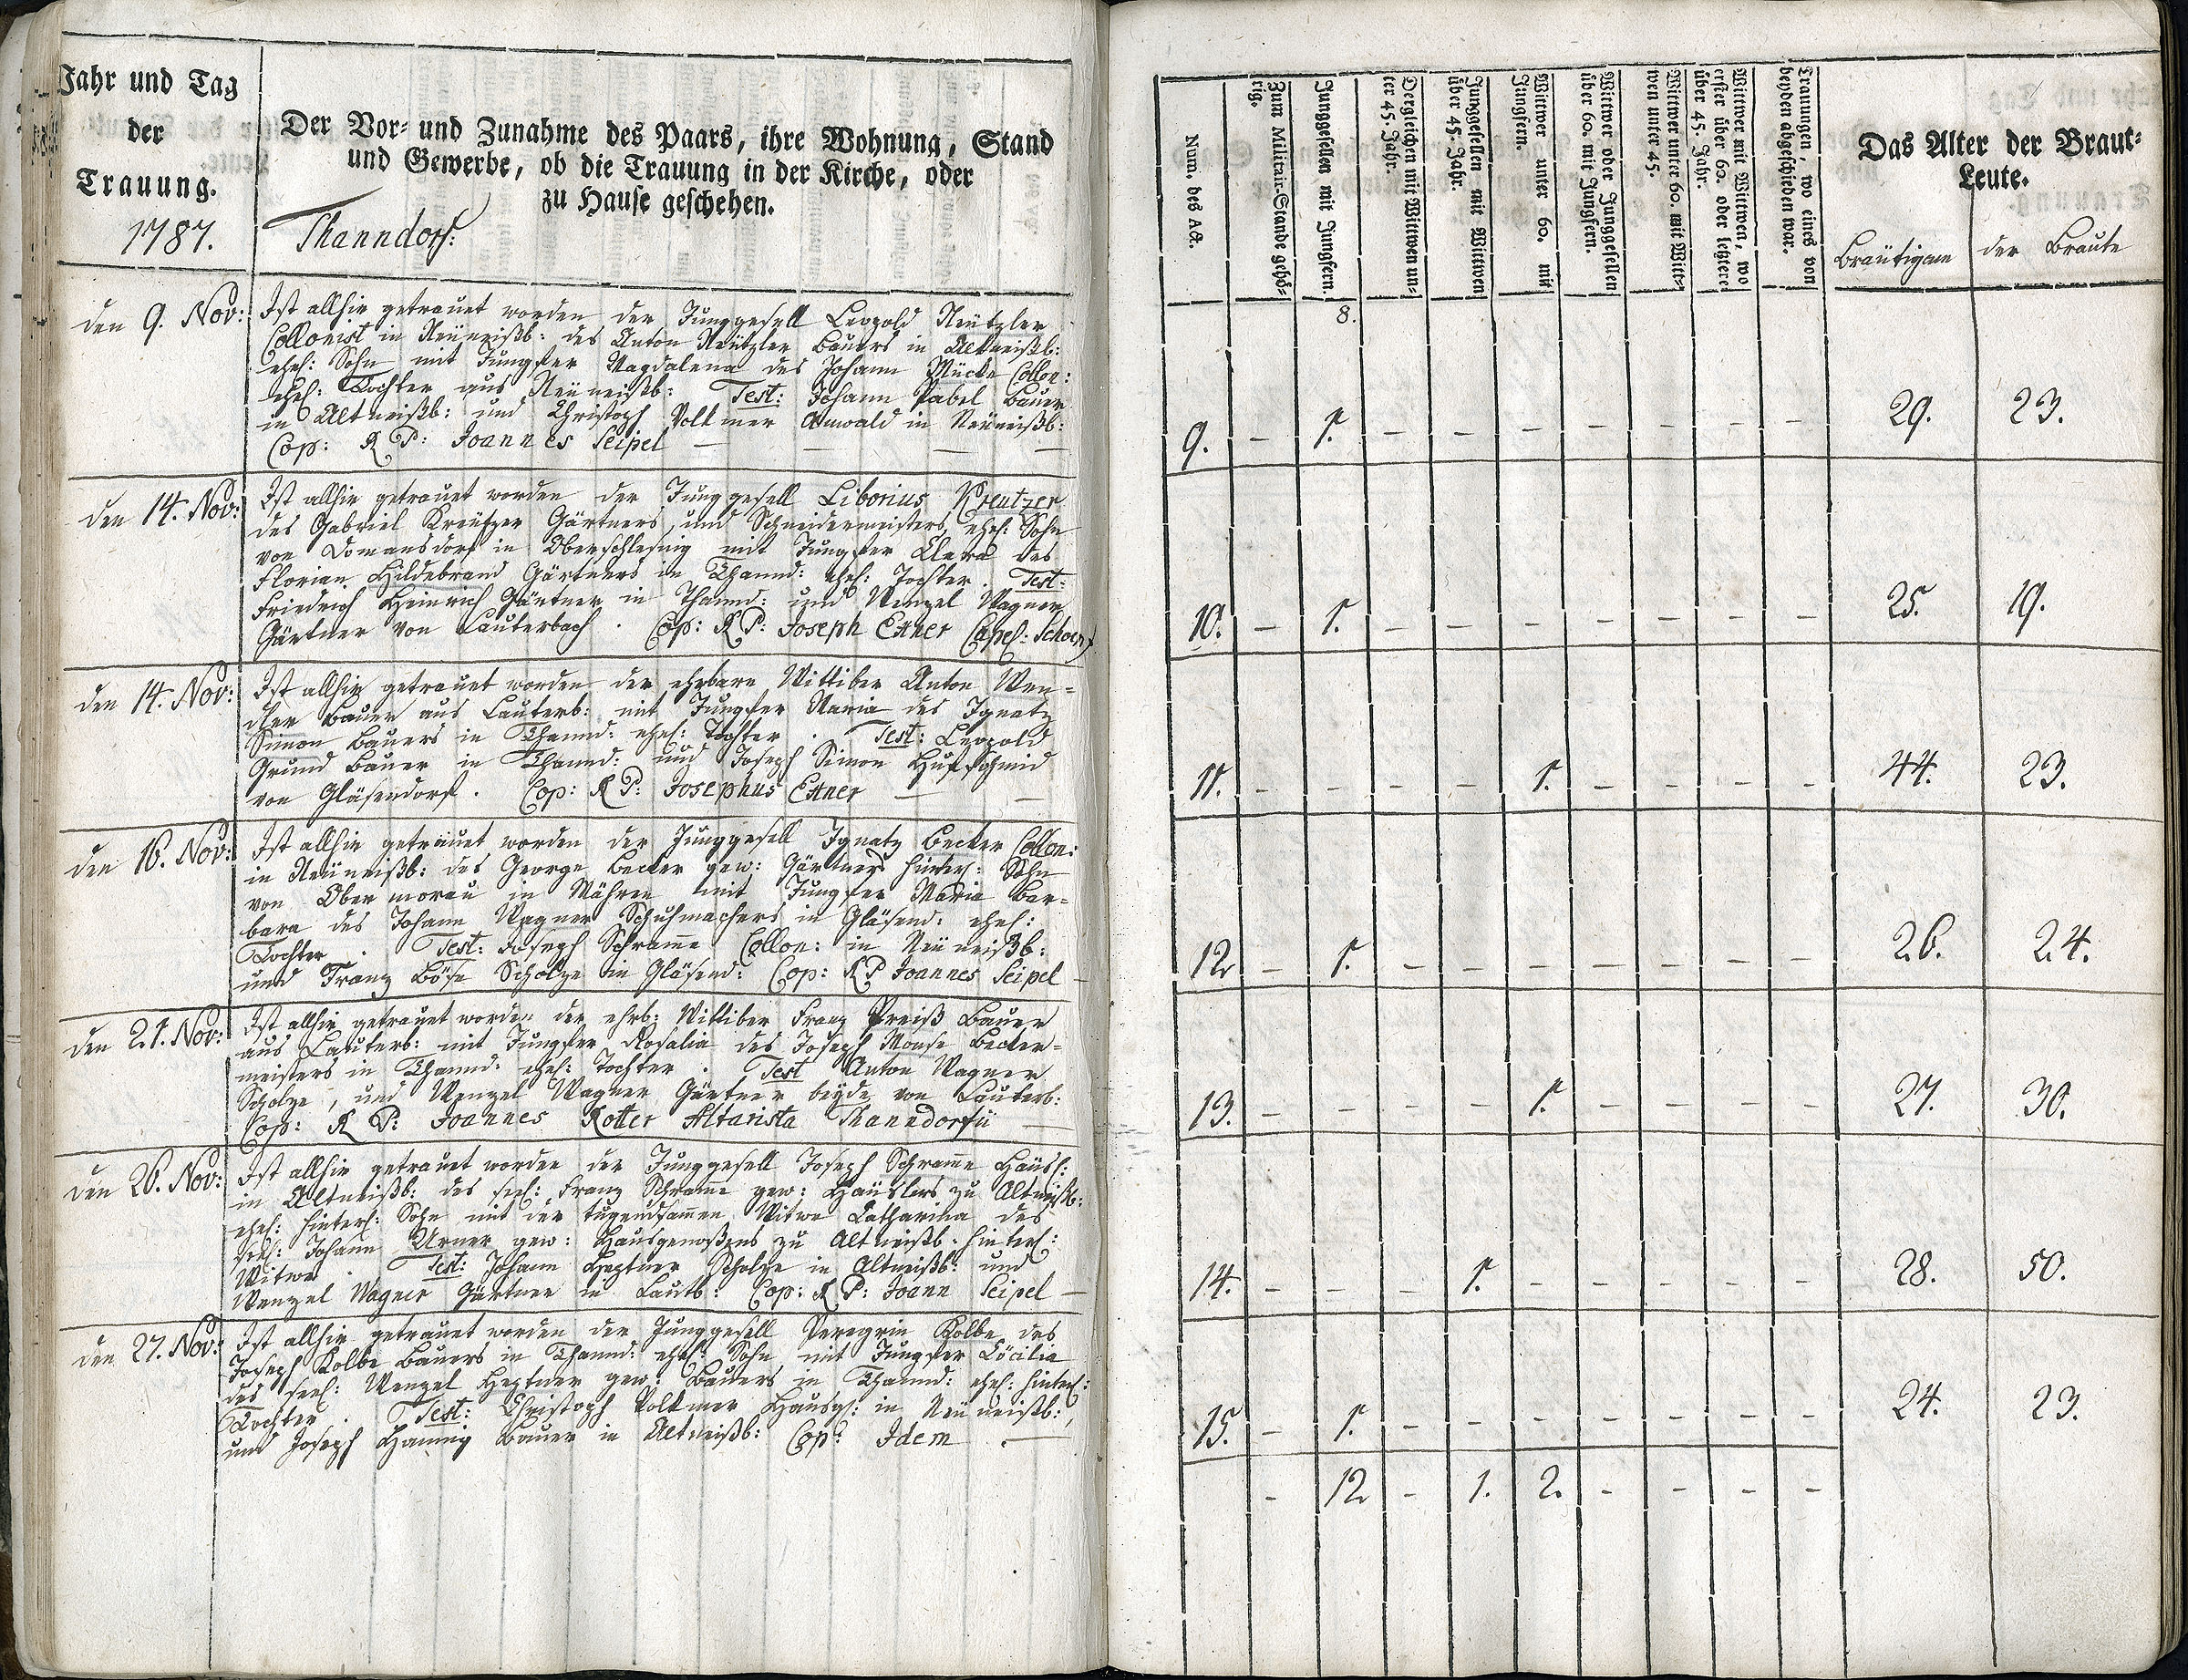 Jahr und Tag
der
Trauung.
1787.
Der Vor- und Zunahme des Paars, ihre Wohnung, Stand
und Gewerbe, ob die Trauung in der Kirche, oder
zu Hause geschehen.
Thanndorf:
den 9. Nov:
Ist allhier getrauet worden der Junggesell Leopold Neützler
Collonist in Neüneißb: des Anton Neützler Bauers in Altneißb:
ehel: Sohn mit Jungfer Magdalena des Johann Mücke Collon:
ehel: Tochter aus Neüneißb: Test: Johann Pabel Bauer
in Altneißb: und Christoph Volkmer Anwald in Neüneißb:
Cop: R P: Joannes Seipel —
den 14. Nov:
Ist allhier getrauet worden der Junggesell Liborius Kreutzer
des Gabriel Kreützer Gärtners, und Schneidermeisters ehel: Sohn
von Domansdorf in Oberschlesing mit Jungfer Clara des
Florian Hildebrand Gärtners in Thannd: ehel: Tochter. Test:
Friedrich Heinrich Gärtner in Thannd: und Wenzel Wagner
Gärtner von Lauterbach. Cop: R P: Joseph Exner Capel:
den 14. Nov:
Ist allhier getrauet worden der ehrbare Wittiber Anton Wen=
dler Bauer aus Lauterb: mit Jungfer Maria des Ignatz
Simon Bauers in Thannd: ehel: Tochter. Test: Leopold
Grund Bauer in Thannd: und Joseph Simon Hufschmid
von Gläsendorf. Cop: R P: Josephus Exner —
den 16. Nov:
Ist allhier getrauet worden der Junggesell Ignatz Becker Collon:
in Neüneißb: des George Becker gew: Gärtners hinterl: Sohn
von Obermorau in Mähren mit Jungfer Maria Bar=
bara des Johann Wagner Schuhmachers in Gläsend: ehel:
Tochter. Test: Joseph Schramme Collon: in Neüneißb:
und Franz Böse Scholze in Gläsend: Cop: R P Joannes Seipel —
den 21. Nov:
Ist allhier getrauet worden der ehrb: Wittiber Franz Preiß Bauer
aus Lauterb: mit Jungfer Rosalia des Joseph Monse Becker=
meisters in Thannd: ehel: Tochter. Test Anton Wagner
Scholze, und Wenzel Wagner Gärtner beyde von Lauterb:
Cop: R P: Joannes Rotter Altarista Thanndorfii —
den 26. Nov:
Ist allhier getrauet worden der Junggesell Joseph Schramme Häusl:
in Altneißb: des seel: Franz Schramme gew: Häuslers zu Altneißb:
ehel: hinterl: Sohn mit der tugendsammen Witwe Catharina des
seel: Johann Urner gew: Hausgenoßens zu Altneißb: hinterl:
Witwe. Test: Johann Heptner Scholze in Altneißb: und
Wenzel Wagner Gärtner in Lautb: Cop: R P: Joann Seipel —
den 27. Nov:
Ist allhier getrauet worden der Junggesell Peregrin Kolbe des
Joseph Kolbe Bauers in Thannd: ehel: Sohn mit Jungfer Cöcilia
des seel: Wenzel Heptner gew: Bauers in Thannd: ehel: hinterl:
Tochter. Test: Christoph Volkmer Hausgs: in Neüneißb:,
und Joseph Hannig Bauer in Altneißb: Cop: Idem. —
Num. des Act.
Zum Militair-Stande gehö-
rig.
Junggesellen mit Jungfern.
Dergleichen mit Wittwen un-
ter 45. Jahr.
Junggesellen mit Wittwen
über 45. Jahr.
Wittwer unter 60. mit
Jungfern.
Wittwer oder Junggesellen
über 60. mit Jungfern.
Wittwer unter 60. mit Witt-
wen unter 45.
Wittwer mit Wittwen, wo
erster über 60. oder letztere
über 45. Jahr.
Trauungen, wo eines von
beyden abgeschieden war.
Das Alter der Braut-
Leute.
Bräutigam der Braute
8.
9. – 1. – – – – – – – 29. 23.
10. – 1. – – – – – – – 25. 19.
11. – – – – 1. – – – – 44. 23.
12 – 1. – – – – – – – 26. 24.
13. – – – – 1. – – – – 27. 30.
14. – – – 1. – – – – – 28. 50.
15. – 1. – – – – – – – 24. 23.
– 12 – 1. 2. – – – –